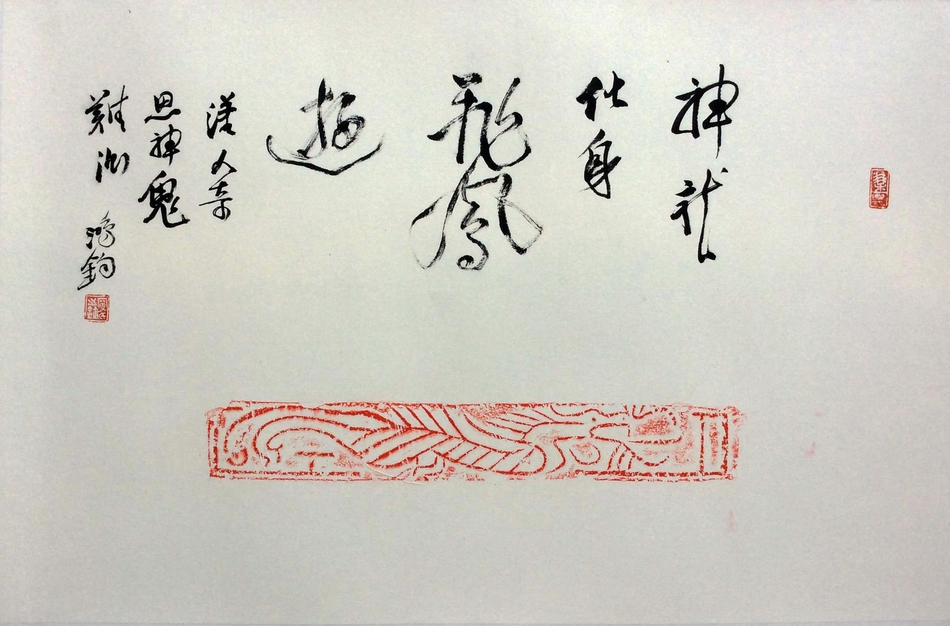 神龍
化身
飛鳳
遊
漢人奇
思神鬼
難測
鴻鈞